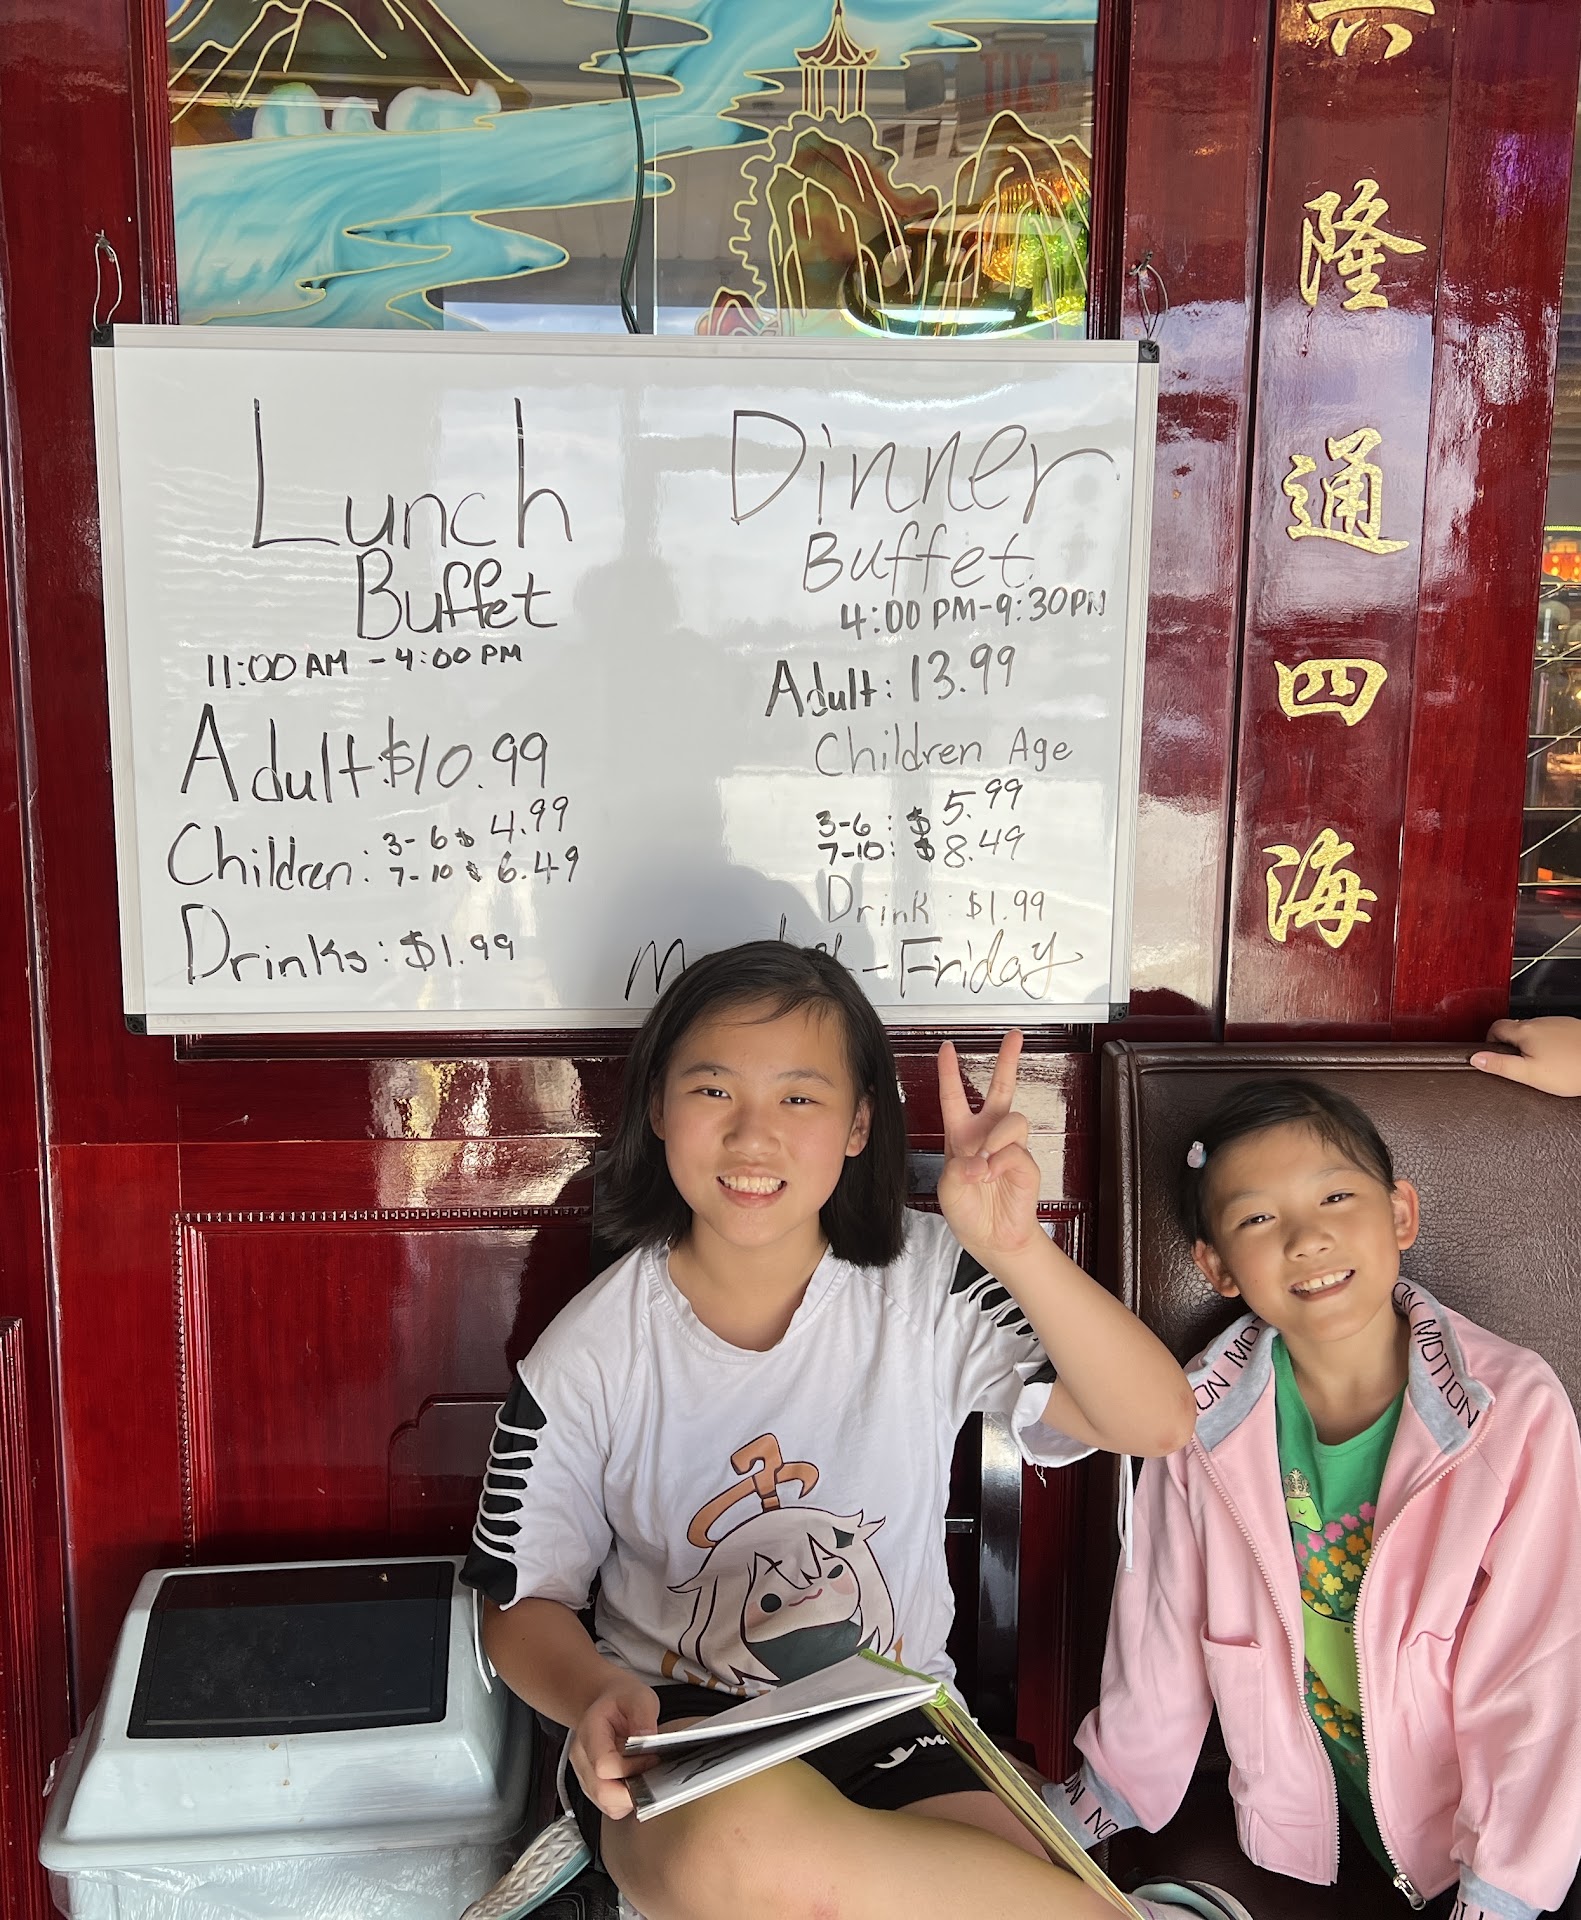 EXIT
Lunch
Buffet
11:00 AM - 4:00 PM
Adult: $10.99
Children: 3-6 $ 4.99
7-10 $ 6.49
Drinks: $1.99
Dinner
Buffet
4:00 PM-9:30PM
Adult: 13.99
Children Age
3-6: $ 5.99
7-10: $ 8.49
Drink: $1.99
-Friday
隆
通
四
海
ON MOTION